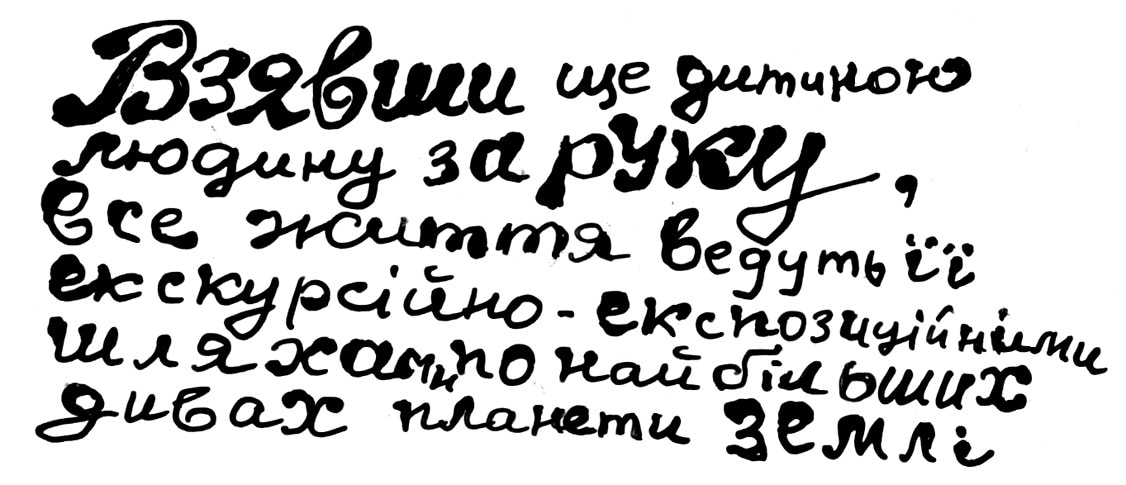 Взявши ще дитиною
людину за руку,
все життя ведуть її
екскурсійно-експозиційними
шляхами по найбільших
дивах планети Землі